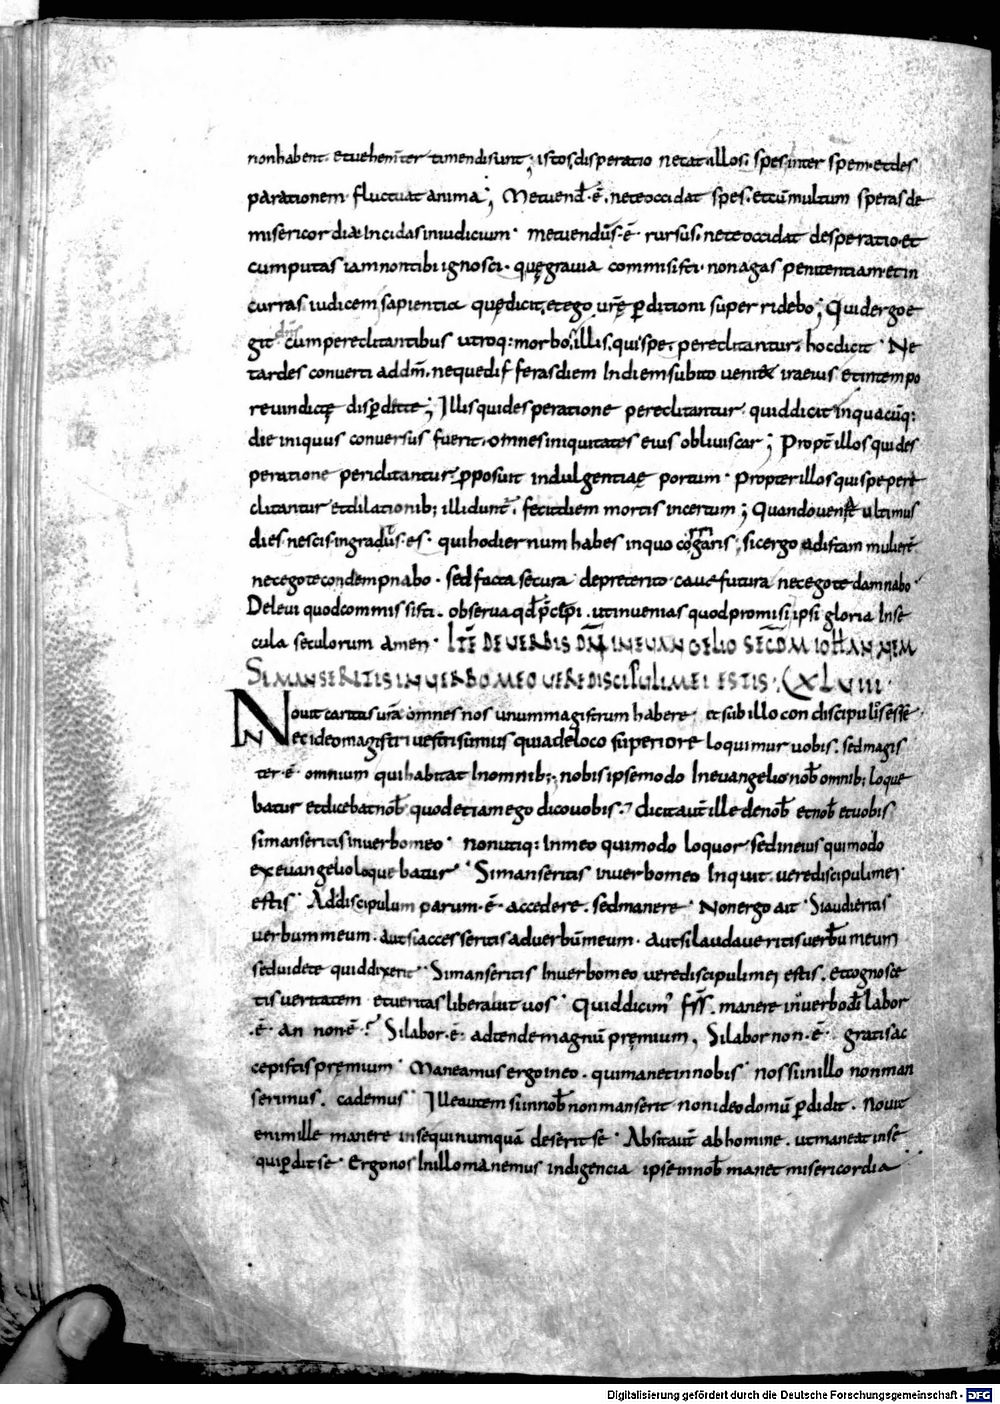 non habent. et uehem̄ter timendi sunt; istos disperatio necat. illos. spes; inter spem. et des
parationem fluctuat anima; Metuend̄. ē. ne te occidat spes. et cū multum speras de
misericordia. Incidas in iudicium. metuendūs. ē. rursus. ne te occidat desperatio. et
cum putas iam non tibi ignosci. quę grauia commisisti. non agas penitentiam. et in
curras iudicem sapientia quę dicit. et ego urē perditioni superridebo; Quid ergo e
git dns̄ cum pereclitantibus utroq: morbo. illis. qui spe. pereclitantur. hoc dicit. Ne
tardes conuerti ad dm̄. neque differas diem In diem subito ueniet ira eius et in tempo
re uindictę disperdet te; Illis qui desperatione pereclitantur. quid dicit in quacūq:
die iniquus conuersus fuerit. omnes iniquitates eius obliuiscar; Propt̄ illos qui des
peratione periclitantur. proposuit indulgentiae portum. Propter illos qui spe peri
clitantur et dilationib; illidunt̄. fecit diem mortis incertum; Quando ueniat ultimus
dies. nescis. ingratus. es. qui hodiernum habes in quo corrigaris; sic ergo ad istam mulierē
nec ego te condempnabo. sed facta secura de preterito caue futura nec ego te damnabo.
Deleui quod commissisti. obserua qd̄ pręcepi. ut inuenias quod promisi ipsi gloria In se
cula seculorum amen. ITĒ DE UERBIS DN̄I IN EUANGELIO SECDM IOHANNEM
SI MANSERITIS IN UERBO MEO UERE DISCIPULI MEI ESTIS. XLVIII.
Nouit caritas urā omnes nos unum magistrum habere. et sub illo condiscipulos esse.
Nec ideo magistri uestri sumus quia de loco superiore loquimur uobis. sed magis
ter. ē. omnium qui habitat In omnib;. nobis ipse modo In euangelio nob̄ omnib; loque
batur et dicebat nob̄. quod etiam ego dico uobis. dicit aut̄ ille de nob̄ et nob̄ et uobis
si manseritis in uerbo meo. non utiq: In meo qui modo loquor. sed in eius qui modo
ex euangelio loquebatur. Si manseritis in uerbo meo Inquit. uere discipuli mei
estis. Ad discipulum parum. ē. accedere. sed manere. Non ergo ait Si audieritis
uerbum meum. aut si accesseritis ad uerbū meum. aut si laudaueritis uerbū meum
sed uidete quid dixerit. Si manseritis In uerbo meo uere discipuli mei estis. et cognosce
tis ueritatem et ueritas liberauit uos. Quid dicim' frs̄. manere in uerbo dī labor
. ē. an non ē.? Si labor. ē. adtende magnū pręmium, Si labor non. ē. gratis ac
cepistis pręmium. Maneamus ergo in eo. qui manet in nobis. nos si in illo non man
serimus. cademus. Ille autem si in nob̄ non manserit non ideo domū perdidit. Nouit
enim ille manere in se qui numquā deserit se. Absit aut̄ ab homine. ut maneat in se
qui perdit se. Ergo nos In illo manemus indigencia ipse in nob̄ manet misericordia
Digitalisierung gefördert durch die Deutsche Forschungsgemeinschaft - DFG